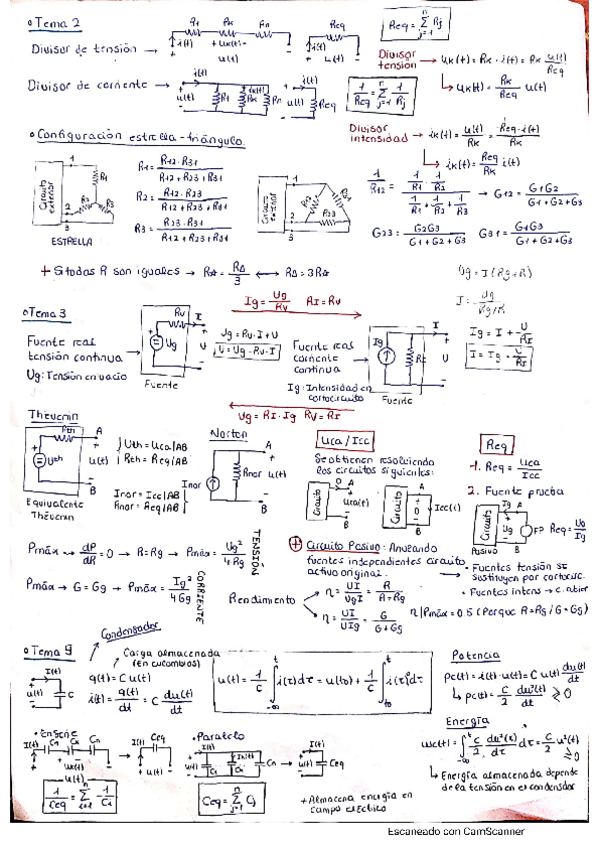 • Tema 2
R1 Rk Rn Req
Req = Σ Rj
Divisor de tensión →
i(t) + uk(t) - i(t)
u(t) u(t)
Divisor tensión → uk(t) = Rk · i(t) = Rk u(t)/Req
↳ uk(t) = Rk/Req u(t)
Divisor de corriente →
i(t) ik(t) i(t)
u(t) R1 Rk Rn u(t) Req
1/Req = Σ 1/Rj
Divisor intensidad → ik(t) = u(t)/Rk = Req·i(t)/Rk
↳ ik(t) = Req/Rk i(t)
• Configuración estrella-triángulo
Circuito exterior 1 2 3 R1 R2 R3
ESTRELLA
R1 = R12·R31/(R12+R23+R31)
R2 = R12·R23/(R12+R23+R31)
R3 = R23·R31/(R12+R23+R31)
Circuito exterior 1 2 3 R12 R31 R23
TRIÁNGULO
1/R12 = (1/R1 · 1/R2)/(1/R1 + 1/R2 + 1/R3) → G12 = G1G2/(G1+G2+G3)
G23 = G2G3/(G1+G2+G3) G31 = G1G3/(G1+G2+G3)
+ Si todas R son iguales → R⅄ = RΔ/3 ↔ RΔ = 3R⅄
Ug = I (Rg+R)
• Tema 3
Ig = Ug/RV RI = RV
Fuente real tensión continua →
Ug: Tensión en vacío
RV I Ug V
Fuente
Ug = RV·I + V
V = Ug - RV·I
Fuente real corriente continua →
Ig: Intensidad en cortocircuito
Ig RI I U
Fuente
Ig = I + U/RI
I = Ig - U/RI
Ug = RI·Ig RV = RI
Thévenin
Rth A Uth u(t) B
Equivalente Thévenin
Uth = Uca|AB
Rth = Req|AB
Norton
Inor Rnor u(t) A B
Inor = Icc|AB
Rnor = Req|AB
Uca / Icc
Se obtienen resolviendo los circuitos siguientes:
Circuito A Uca(t) B
Circuito A Icc(t) B
Req
1. Req = Uca/Icc
2. Fuente prueba
Circuito Pasivo Ig A Ug FP B Req = Ug/Ig
Pmáx → dP/dR = 0 → R = Rg → Pmáx = Ug²/4Rg TENSIÓN
Pmáx → G = Gg → Pmáx = Ig²/4Gg CORRIENTE
+ Circuito Pasivo: Anulando fuentes independientes circuito activo original.
- Fuentes tensión se sustituyen por cortocirc.
• Fuentes intens → c. abier
Rendimiento
η = UI/UgI = R/(R+Rg)
η = UI/UIg = G/(G+Gg)
η|Pmáx = 0.5 (Porque R=Rg / G=Gg)
• Tema 9
Condensador
Carga almacenada (en culombios)
i(t) u(t) C
q(t) = C u(t)
i(t) = q(t)/dt = C du(t)/dt
u(t) = 1/C ∫ i(τ)dτ = u(t0) + 1/C ∫ i(τ)dτ
Potencia
pc(t) = i(t)·u(t) = C u(t) du(t)/dt
↳ pc(t) = C/2 du²(t)/dt ≷ 0
Energía
wc(t) = ∫ C/2 du²(τ)/dτ dτ = C/2 u²(t) ≥ 0
↳ Energía almacenada depende de la tensión en el condensador
• En serie
I(t) C1 Ck Cn → I(t) Ceq
uk(t) u(t) + u(t)
1/Ceq = Σ 1/Ci
• Paralelo
I(t) Ik(t) I(t)
u(t) C1 Ck Cn → u(t) Ceq
Ceq = Σ Cj
+ Almacena energía en campo eléctrico
Escaneado con CamScanner